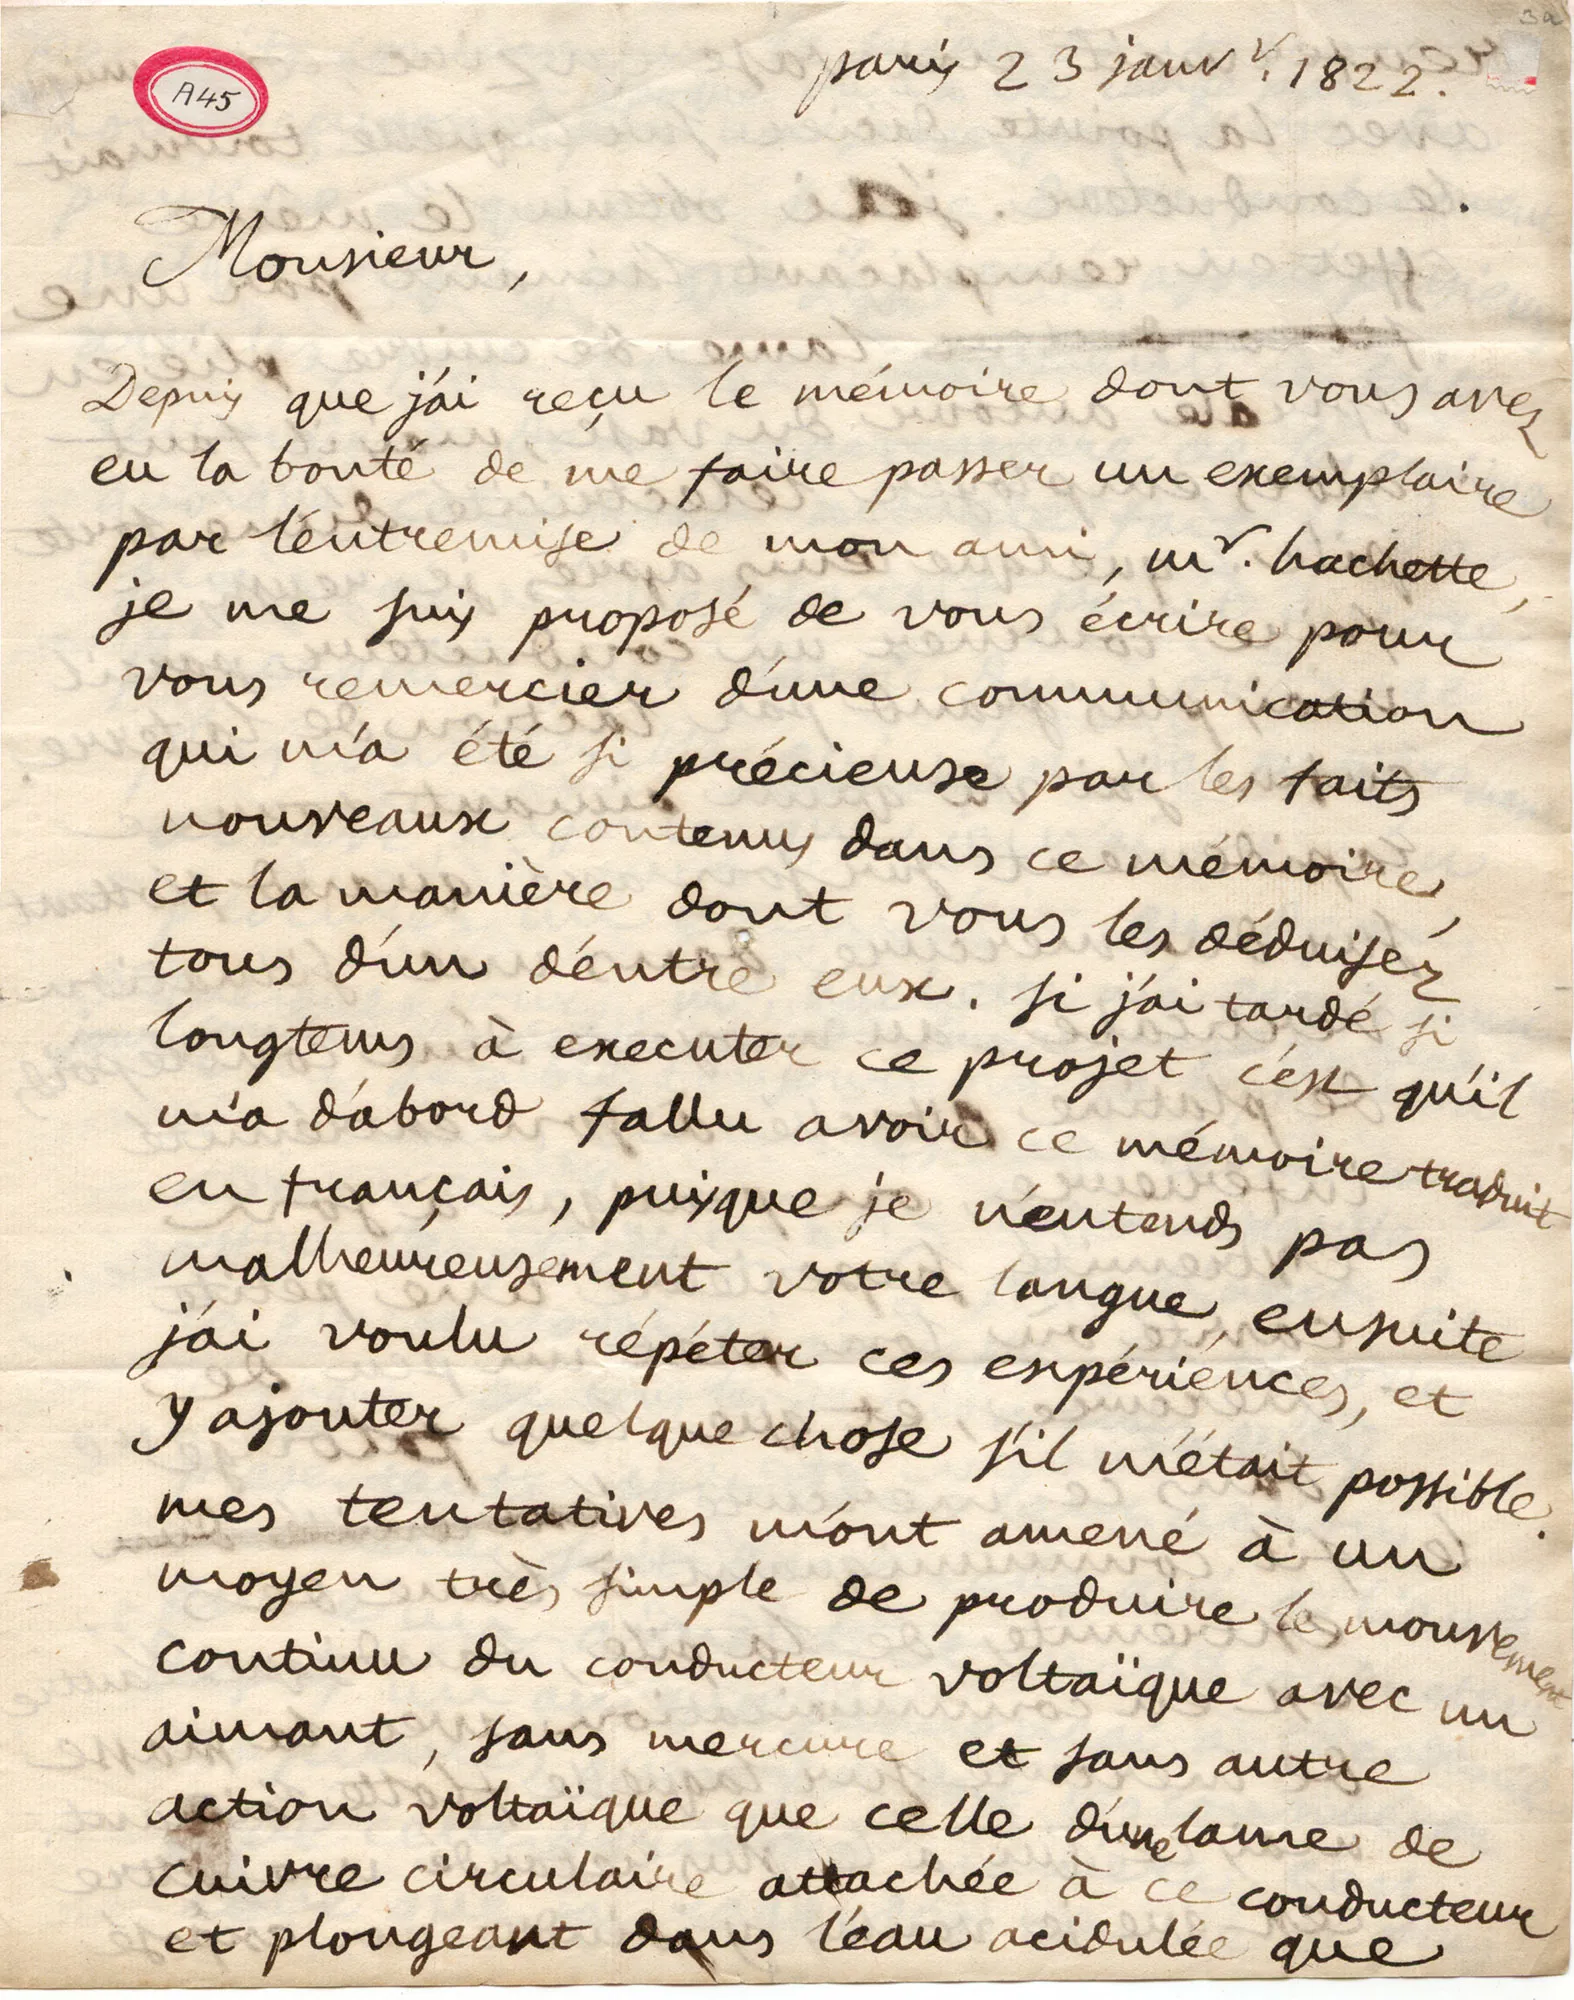 3a
A45
paris 23 janv<sup>r</sup>. 1822.
Monsieur,
Depuis que j'ai reçu le mémoire dont vous avez
eu la bonté de me faire passer un exemplaire
par l'entremise de mon ami, m<sup>r</sup>. hachette,
je me suis proposé de vous écrire pour
vous remercier d'une communication
qui m'a été si précieuse par les faits
nouveaux contenus dans ce mémoire,
et la manière dont vous les déduisez
tous d'un d'entre eux. si j'ai tardé si
longtems à executer ce projet c'est qu'il
m'a d'abord fallu avoir ce mémoire traduit
en français, puisque je n'entends pas
malheureusement votre langue, ensuite
j'ai voulu répéter ces expériences, et
y ajouter quelque chose s'il m'était possible.
mes tentatives m'ont amené à un
moyen très simple de produire le mouvement
continu du conducteur voltaïque avec un
aimant, sans mercure et sans autre
action voltaïque que celle d'une lame de
cuivre circulaire attachée à ce conducteur
et plongeant dans l'eau acidulée que